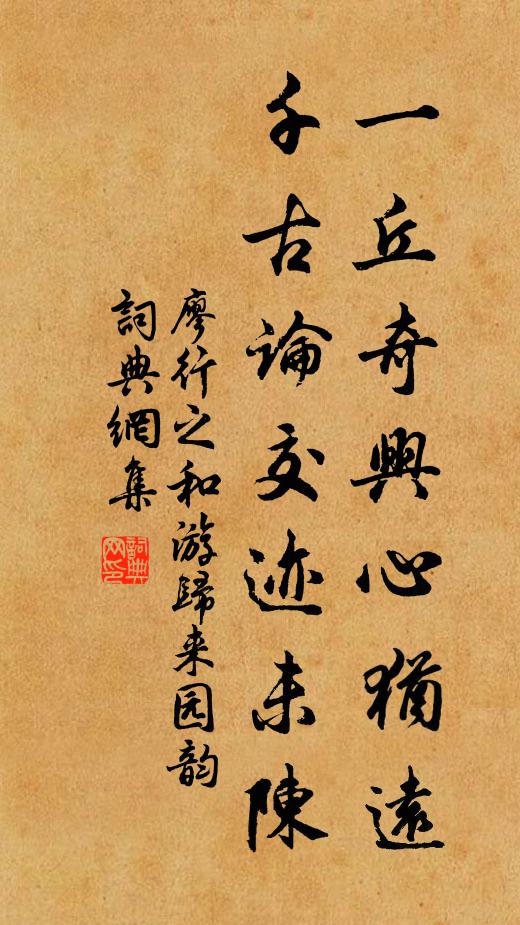 一丘奇興心猶遠
千古論交迹未陳
廖行之和游歸来园韵
詞典網集
詞典网印